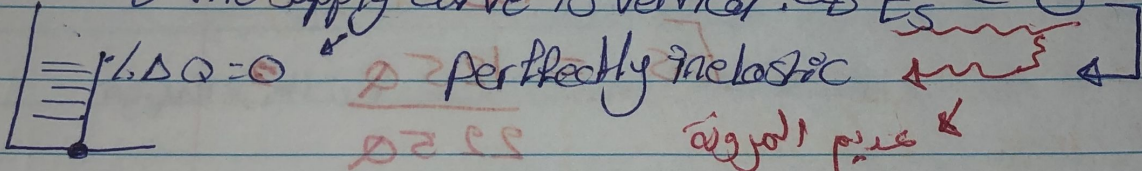 supply curve is vertical. ES
%ΔQ = 0 perffectly inelastic
عديم المرونة